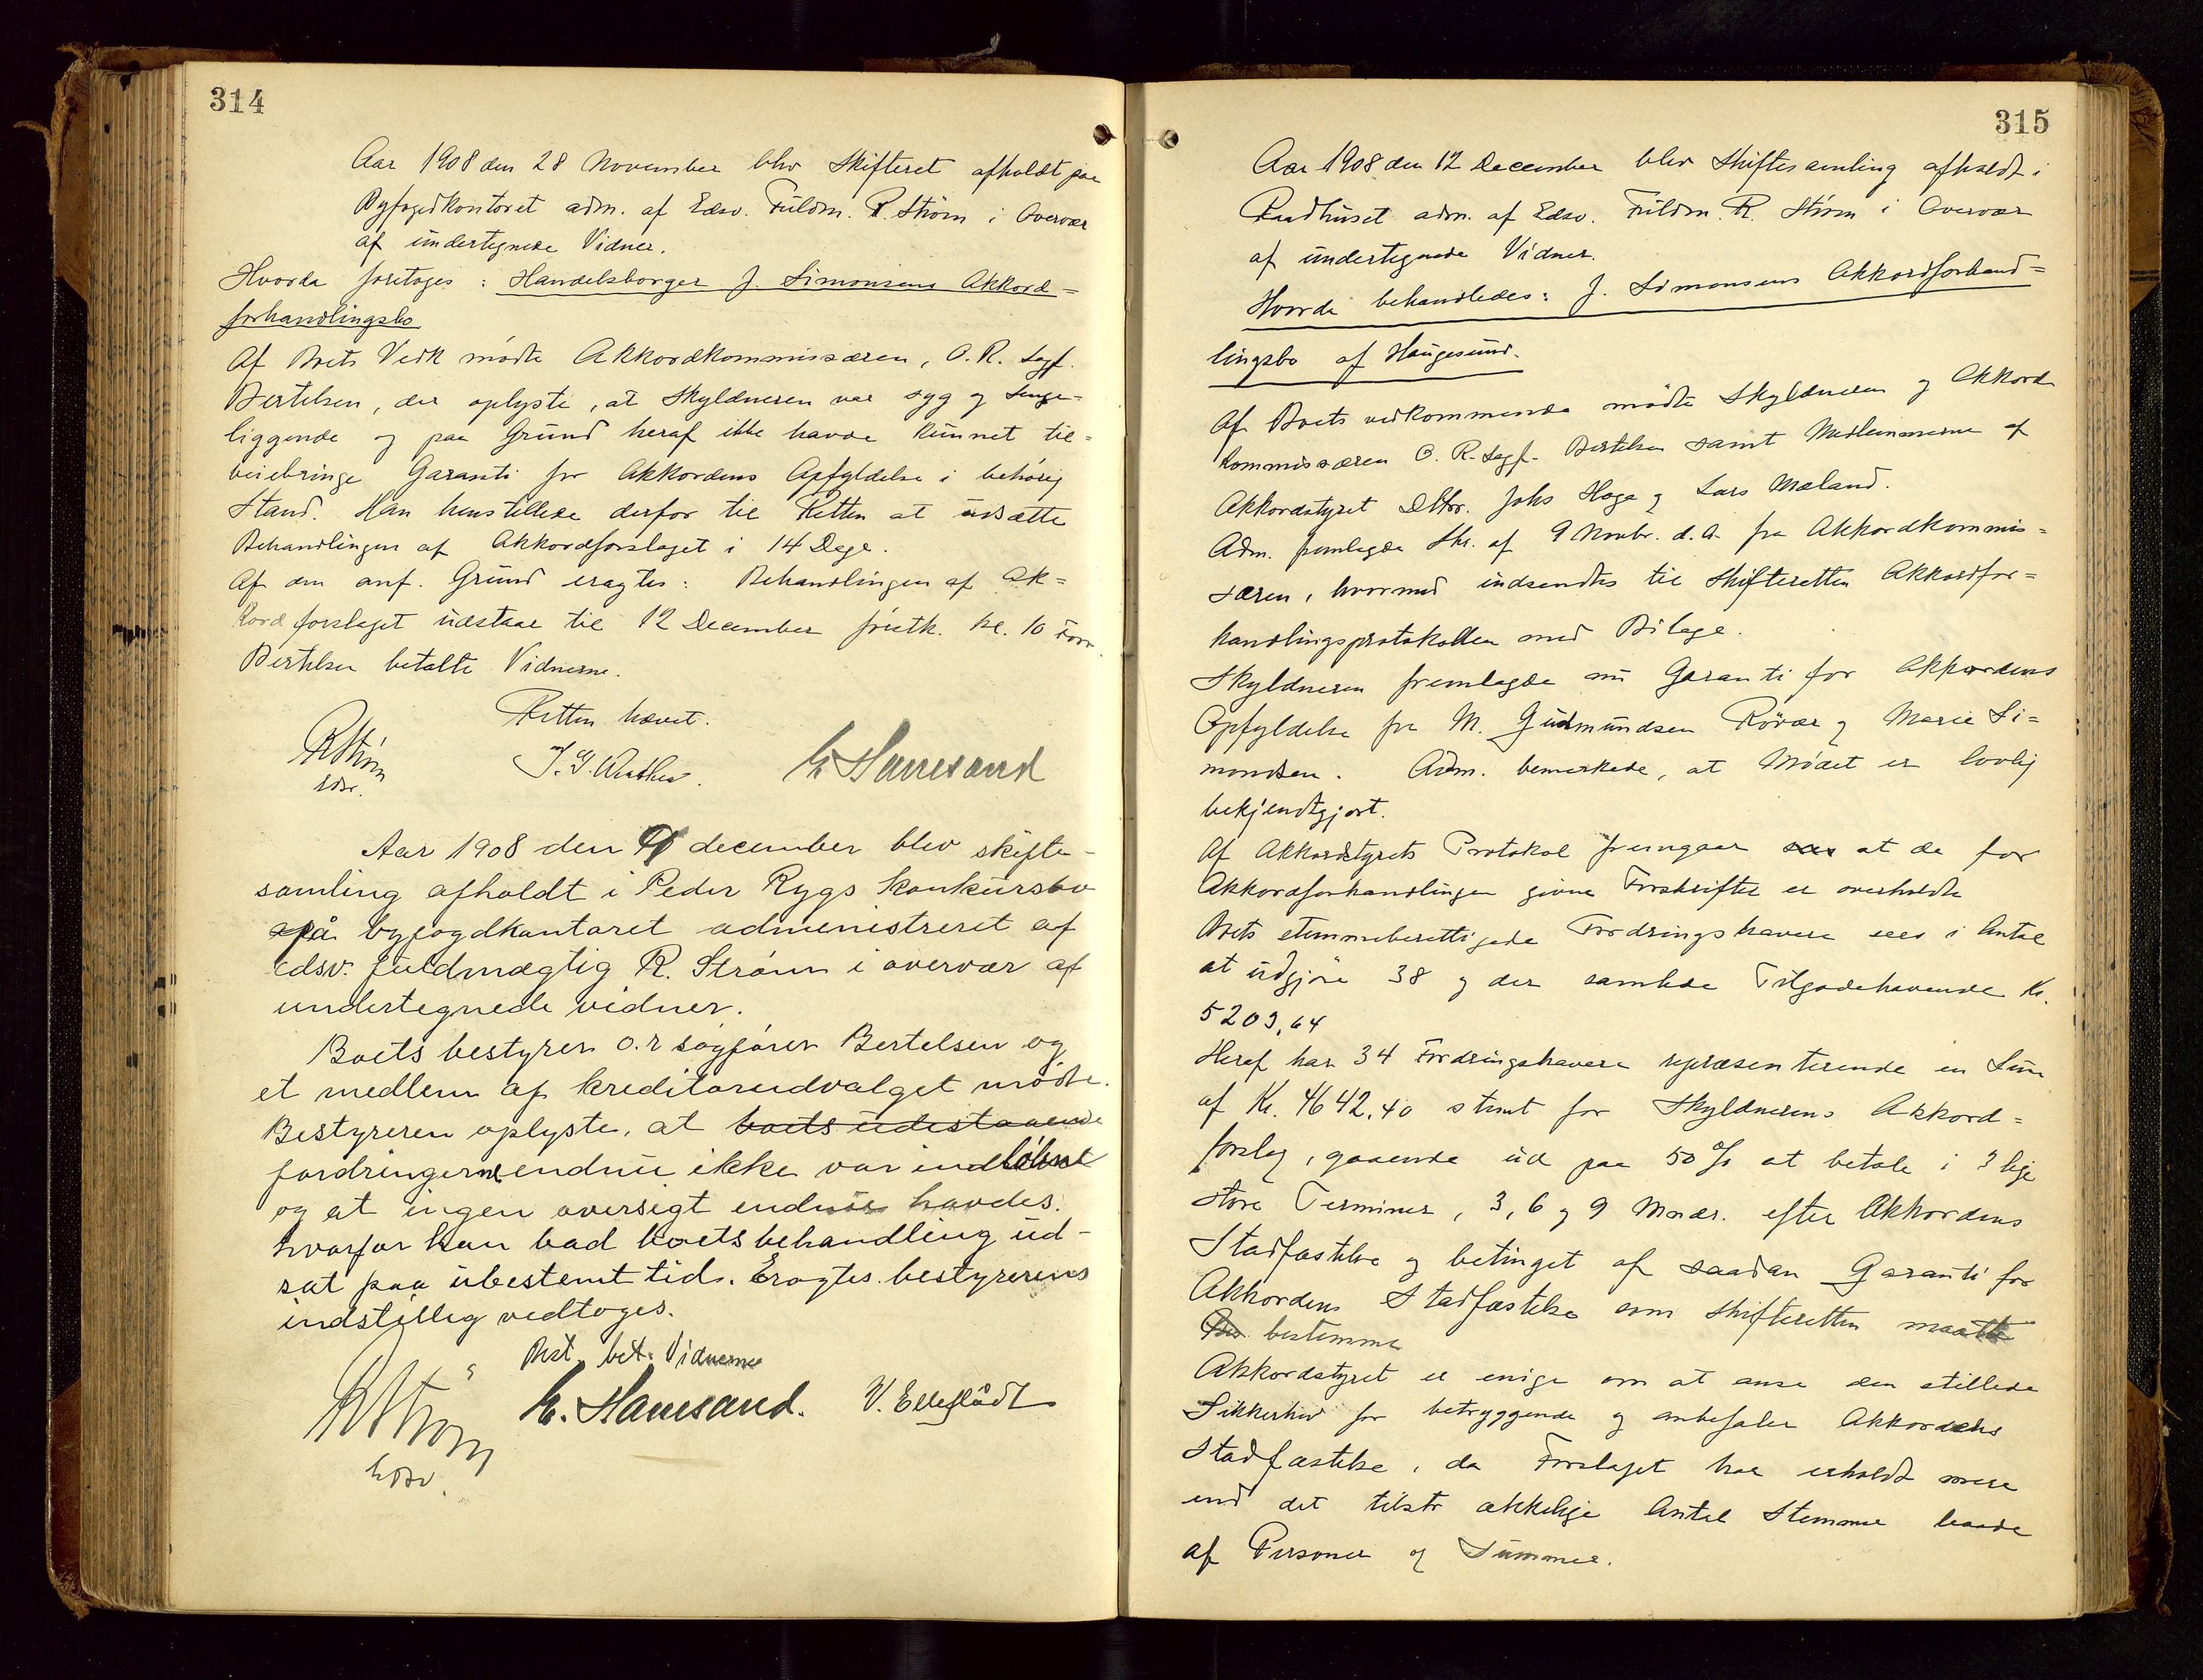 314
Aar 1908 den 28 November blev Skifteret afholdt paa
Byfogedkontoret adm. af Edsv. Fuldm. R. Strøm i Overvær
af undertegnede Vidner.
Hvorda foretoges: Handelsborger J. Simonsens Akkord=
forhandlingsbo
Af Boets Vedk mødte Akkordkommissæren, O.R. Sagf.
Bertelsen, der oplyste, at Skyldneren var syg og senge-
liggende og paa Grund heraf ikke havde kunnet til=
veiebringe Garanti for Akkordens Opfyldelse i behørig
Stand. Han henstillede derfor til Retten at udsætte
Behandlingen af Akkordforslaget i 14 Dage.
Af den anf. Grund eragtes: Behandlingen af Ak=
kordforslaget udstaar til 12 December førstk. kl. 10 Form.
Bertelsen betalte Vidnerne.
Retten hævet.
RStrøm
Edsv.
E Hanesand
Aar 1908 den december blev skifte-
samling afholdt i Peder Rygs konkursbo
på byfogdkontoret administreret af
edsv. fuldmægtig R. Strøm i overvær af
undertegnede vidner.
Boets bestyrer o.r sagfører Bertelsen og
et medlem af kreditorudvalget mødte.
Bestyreren oplyste, at boets udestaaende
fordringer endnu ikke var
og at ingen oversigt endnu havdes.
hvorfor han bad boets behandling ud-
sat paa ubestemt tid. Eragtes bestyrerens
indstillig vedtoges.
Best. bet. Vidnerne
RStrøm
Edsv.
E. Hanesand. V. Elleflådt
315
Aar 1908 den 12 December blev Skiftesamling afholdt i
Raadhuset adm. af Edsv. Fuldm. R. Strøm i Overvær
af undertegnede Vidner.
Hvorda behandledes: J. Simonsens Akkordforhand=
lingsbo af Haugesund.
Af Boets vedkommende mødte Skyldneren og Akkord
kommissæren O.R. Sagf. Bertelsen samt Medlemmerne af
Akkordstyret Johs Haga og Lars Mæland.
Adm. fremlagde Skr. af 9 Novbr. d.A. fra Akkordkommis=
særen, hvormed indsendtes til Skifteretten Akkordfor=
handlingsprotokollen med Bilage.
Skyldneren fremlagde nu Garanti for Akkordens
Opfyldelse fra M. Gudmundsen Røvær og Marie Si=
monsen. Adm. bemerkede, at Mødet er lovlig
bekjendtgjort.
Af Akkordstyrets Protokol fremgaar at de for
Akkordforhandlingen givne Forskrifter er overholdte
Boets stemmeberettigede Fordringshavere sees i Antal
at udgjøre 38 og der samlede Tilgodehavende Kr.
5209,64
Heraf har 34 Fordringshavere repræsenterende en Sum
af Kr. 4642.40 stemt for Skyldnerens Akkord=
forslag, gaaende ud paa 50 % at betale i 3 lige
store Terminer, 3, 6 og 9 Mndr. efter Akkordens
Stadfæstelse og betinget af saadan Garanti for
Akkordens Stadfæstelse som Skifteretten maatte
bestemme
Akkordstyret er enige om at anse den stillede
Sikkerhed for betryggende og anbefaler Akkordens
Stadfæstelse, da Forslaget har erholdt mere
end det tilstrækkelige Antal Stemmer baade
af Personer og Summer.